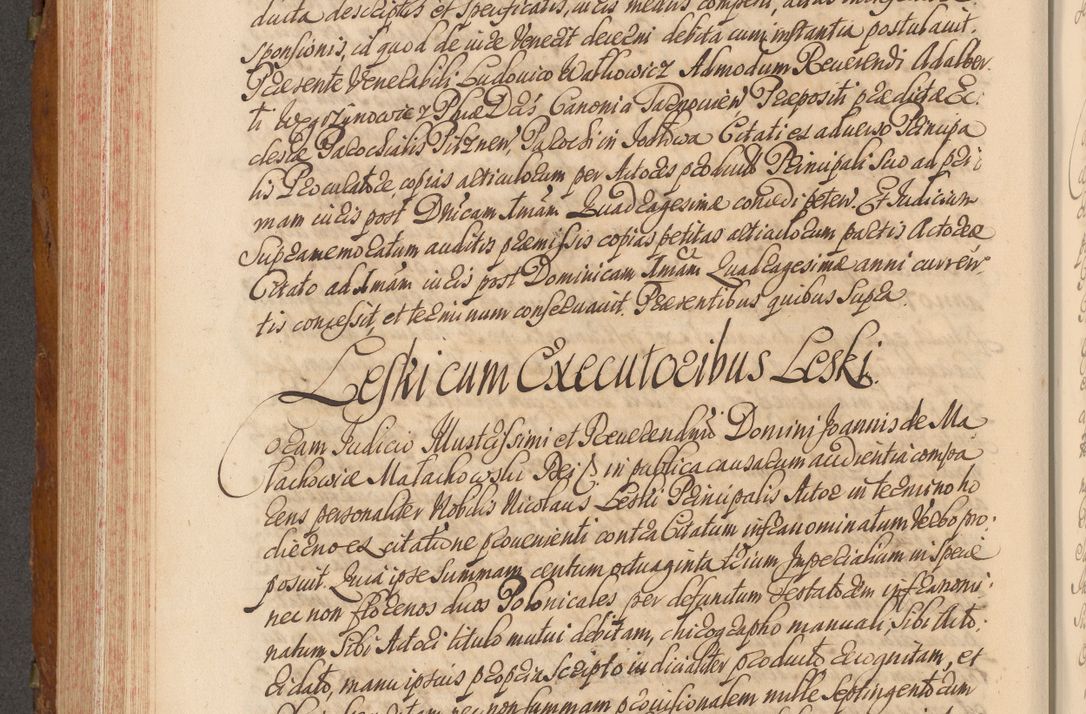 ducta descriptis et specificatis, iuris mediis
sponsionis, id quod de iure venerit decerni debita cum instantia postulavit.
Præsente Venerabili Ludovico Walkowicz Admodum Reverendi Adalber
ti Węgrzynowicz Phiæ Dris Canonici Tarnovien Præpositi prædictæ Ec:
clesiæ Parochialis Pilznen, Parochi in Citati ex adverso Principa
lis Procuratore, copias articulorum per Actores product Principali Suo ad pri:
mam iuris post Dnicam Imam Quadragesimæ concedi peten. Et Judicium
Supramemoratum auditis præmissis copias petitas articulorum partis Actoreæ
Citato ad Imam iuris post Dominicam Imam Quadragesimæ anni curren
tis concessit, et terminum conservavit. Præsentibus quibus Supra.
Leski cum Executoribus Leski.
Coram Judicio Illustrissimi et Reverendissi Domini Joannis de Ma
łachowice Małachowski Dei G in publica causarum audientia compa
rens personaliter Nobilis Nicolaus Leski Principalis Actor in termino ho
dierno ex citatione provenienti contra Citatum infranominatum Verbo pro:
posuit. Quia ipse Summam centum octuaginta trium Imperialium in specie
nec non florenos duos Polonicales per defunctum Testatorem infranomi:
natum Sibi Actori titulo mutui debitam, chirographo manuali, Sibi Acto:
ri dato, manu ipsius propria scripto iudicialiter producto recognitam, et
nec non summam provisionalem mille Septingentorum